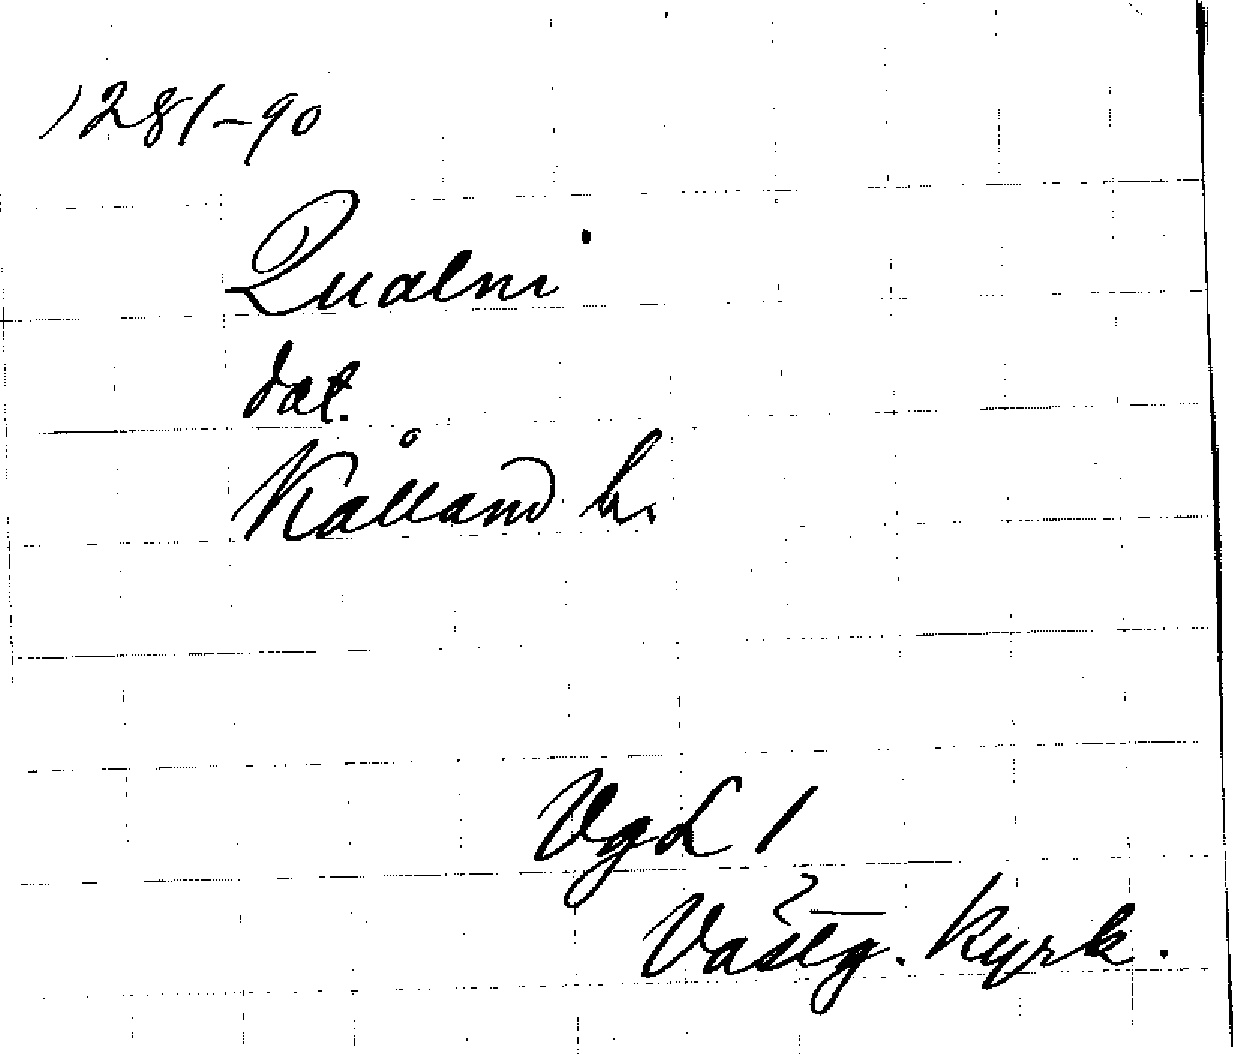 1281-90
Qualni
dat.
Kålland h.
VgL 1
Västg. kyrk.